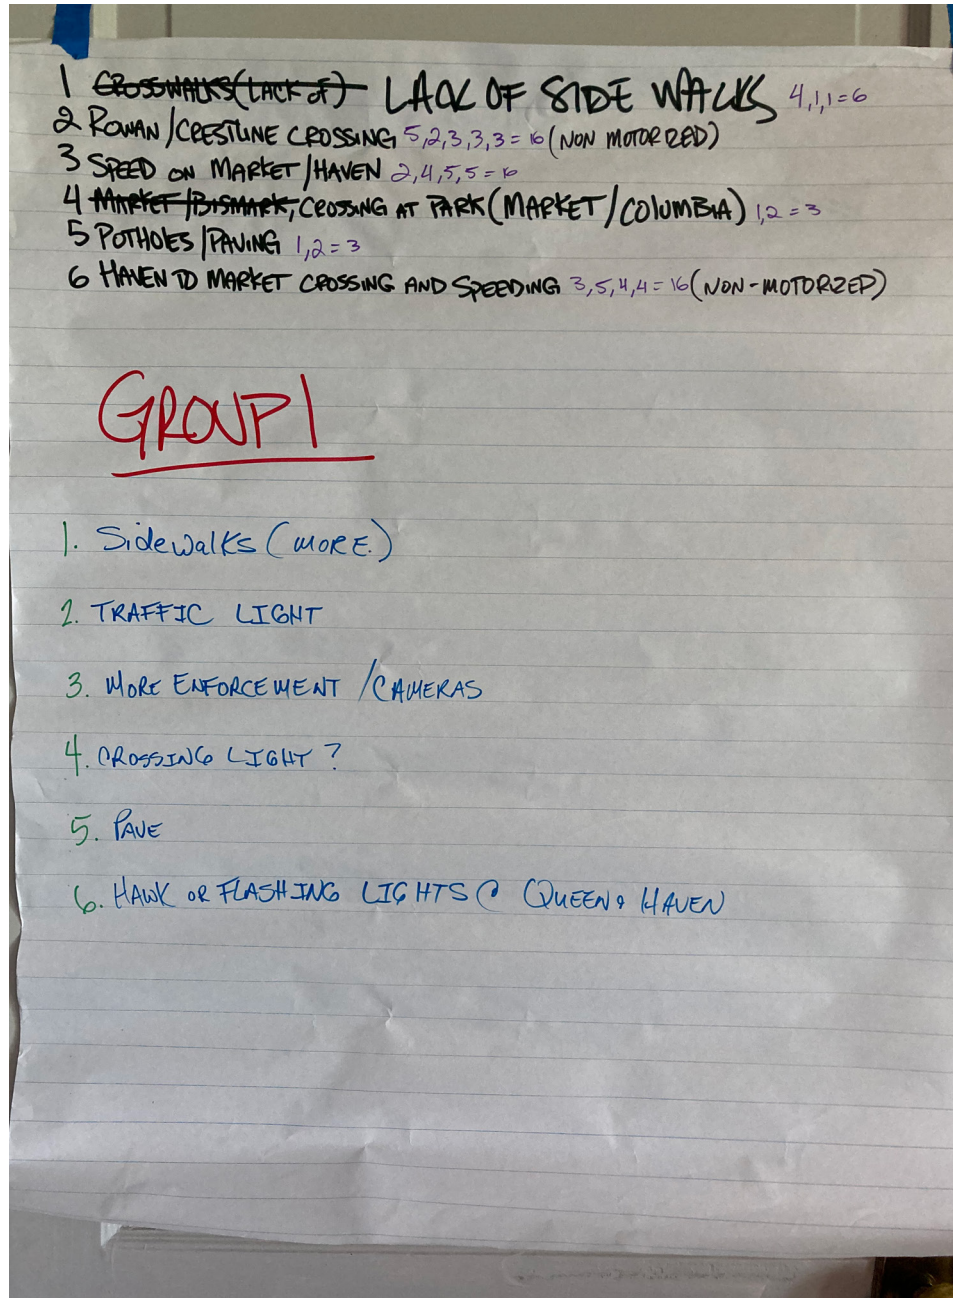 1 CROSSWALKS (LACK OF) LACK OF SIDE WALKS 4,1,1=6
2 ROWAN/CRESTLINE CROSSING 5,2,3,3,3=16 (NON MOTORIZED)
3 SPEED ON MARKET/HAVEN 2,4,5,5=16
4 MARKET/BISMARK, CROSSING AT PARK (MARKET/COLUMBIA) 1,2=3
5 POTHOLES/PAVING 1,2=3
6 HAVEN TO MARKET CROSSING AND SPEEDING 3,5,4,4=16 (NON-MOTORIZED)
GROUP 1
1. Sidewalks (MORE.)
2. TRAFFIC LIGHT
3. MORE ENFORCEMENT /CAMERAS
4. CROSSING LIGHT?
5. PAVE
6. HAWK OR FLASHING LIGHTS @ QUEEN & HAVEN